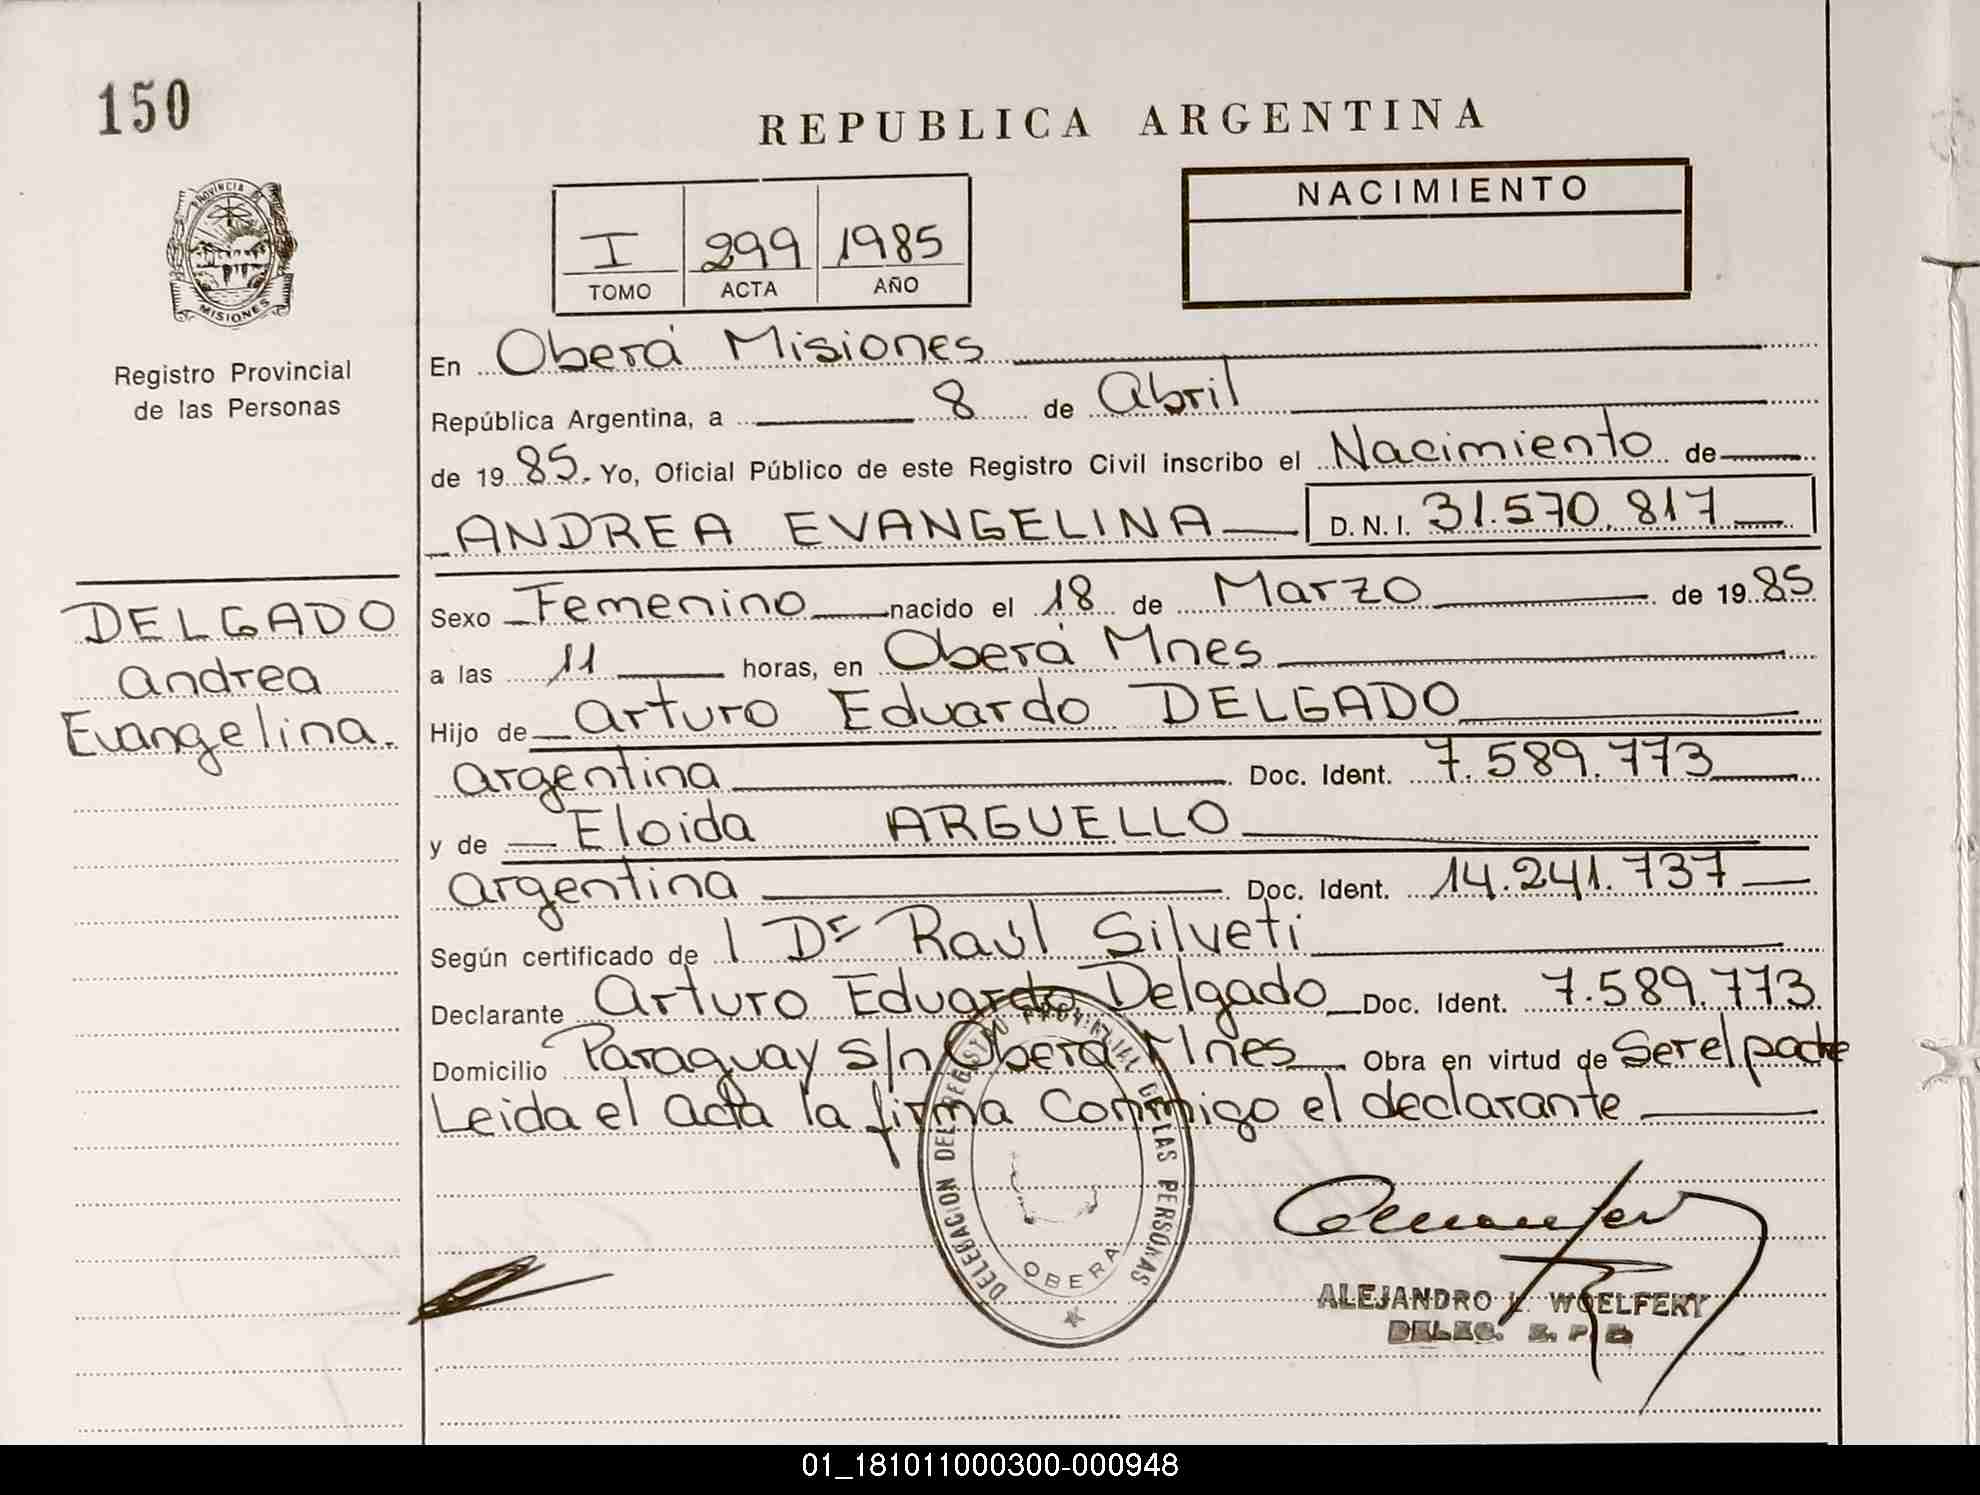 150
REPUBLICA ARGENTINA
PROVINCIA DE
MISIONES
Registro Provincial
de las Personas
I 299 1985
TOMO ACTA AÑO
NACIMIENTO
En Oberá Misiones
República Argentina, a 8 de Abril
de 1985. Yo, Oficial Público de este Registro Civil inscribo el Nacimiento de
ANDREA EVANGELINA D. N. I. 31.570.817
DELGADO
Andrea
Evangelina.
Sexo Femenino nacido el 18 de Marzo de 1985
a las 11 horas, en Oberá Mnes
Hijo de Arturo Eduardo DELGADO
argentina Doc. Ident. 7.589.773
y de Eloida ARGUELLO
argentina Doc. Ident. 14.241.737
Según certificado de l Dr Raúl Silveti
Declarante Arturo Eduardo Delgado Doc. Ident. 7.589.773
Domicilio Paraguay s/n Oberá Mnes Obra en virtud de Ser el padre
Leida el acta la firma Conmigo el declarante
DELEGACION DEL REGISTRO PROVINCIAL DE LAS PERSONAS
OBERA
ALEJANDRO L. WOELFERT
DELEG. R. P. P.
01_181011000300-000948